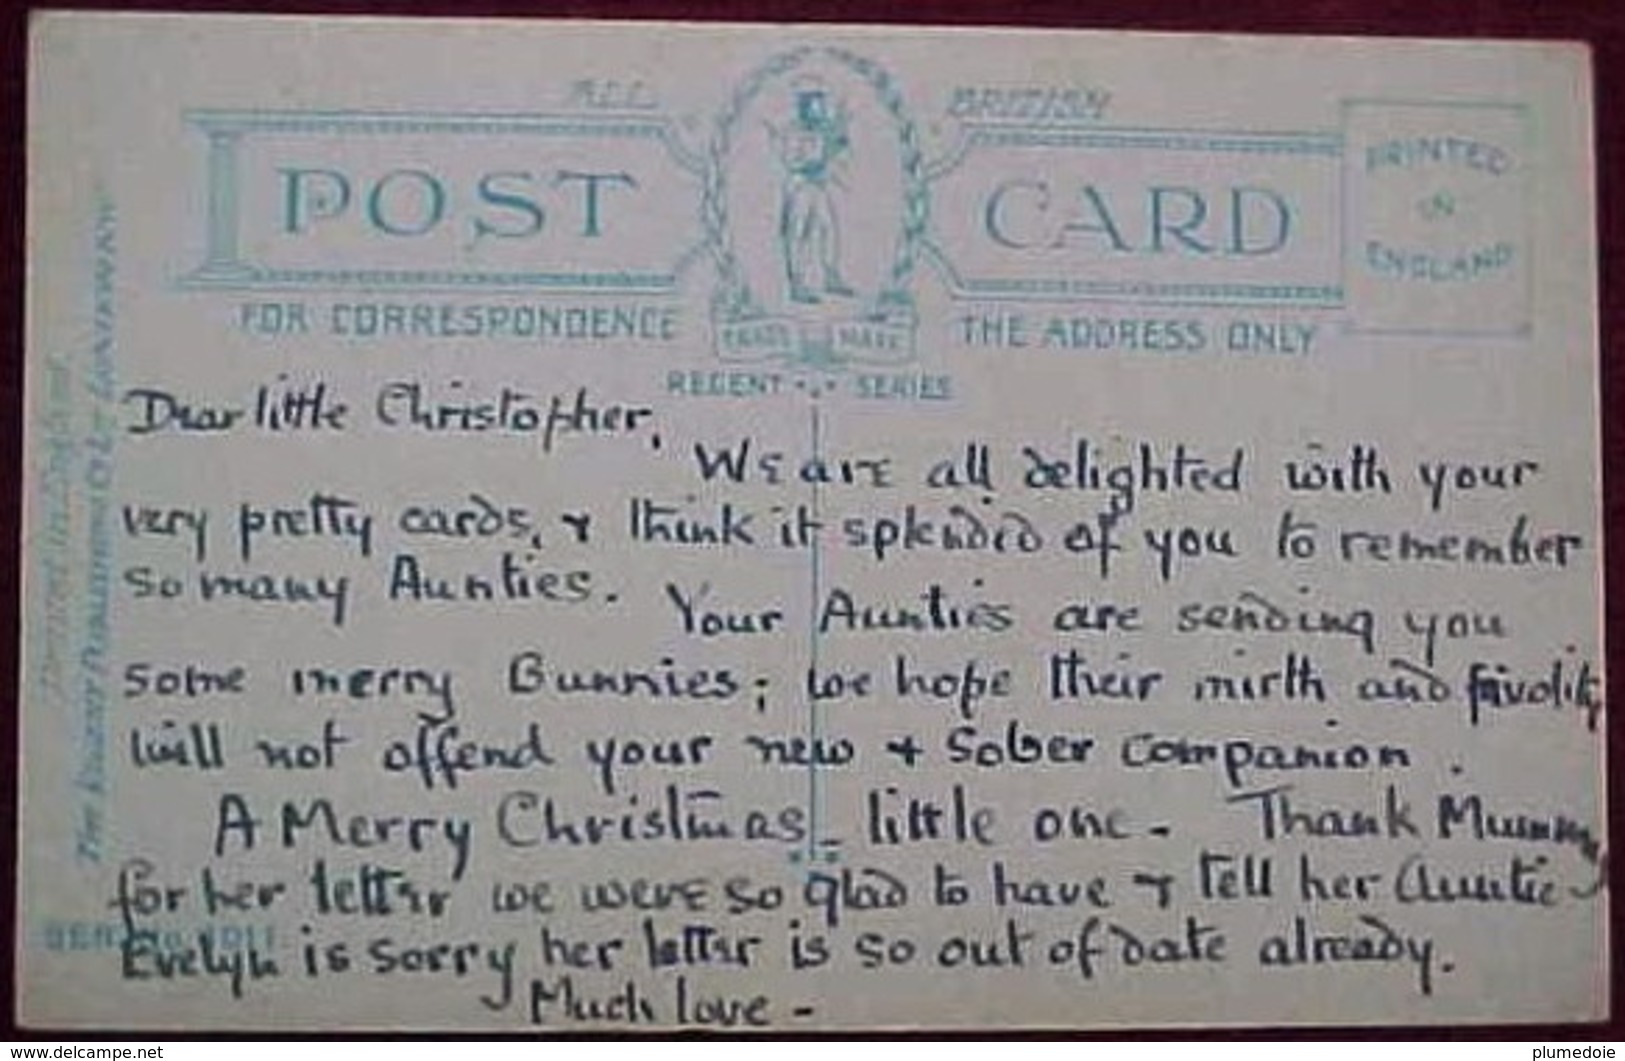 ALL BRITISH
POST CARD
PRINTED
IN
ENGLAND
FOR CORRESPONDENCE
THE ADDRESS ONLY
TRADE MARK
REGENT SERIES
Dear little Christopher,
We are all delighted with your
very pretty cards, & think it splendid of you to remember
so many Aunties. Your Aunties are sending you
some merry Bunnies; we hope their mirth and frivolity
will not offend your new & sober companion.
A Merry Christmas - little one - Thank Mummy
for her letter we were so glad to have & tell her Auntie
Evelyn is sorry her letter is so out of date already.
Much love -
THE REGENT PUBLISHING CO L - LONDON
delcampe.net
plumedoie